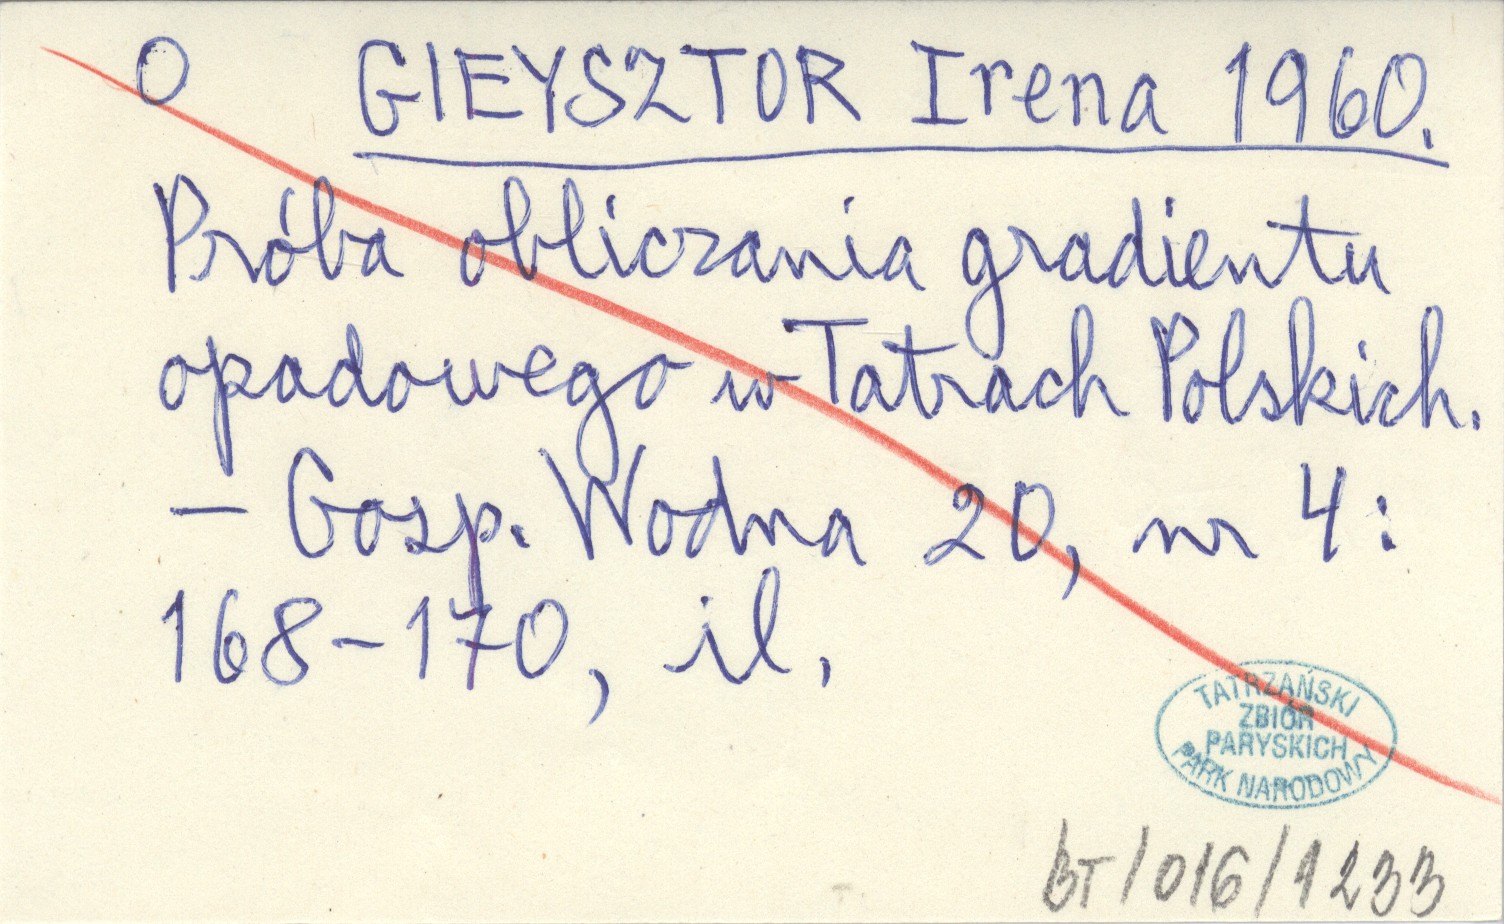 O GIEYSZTOR Irena 1960.
Próba obliczania gradientu
opadowego w Tatrach Polskich.
– Gosp. Wodna 20, nr 4:
168–170, il.
TATRZAŃSKI
ZBIÓR
PARYSKICH
PARK NARODOWY
BT/016/1233